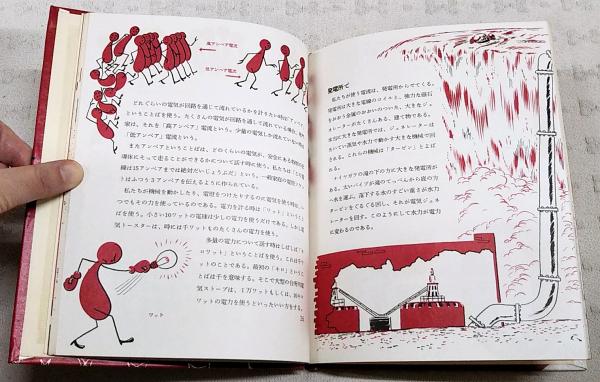 高アンペア電流
低アンペア電流
どれぐらいの電気が回路を通じて流れているかを計りたい時は「アンペア」
ということばを使う。たくさんの電気が回路を通じて流れている場合、専門
家は、それを「高アンペア」電流という。少量の電気しか流れていない時は
「低アンペア」電流という。
またアンペアということばは、どのくらいの電気が、安全にある種類の
導体にそって走ることができるかについて話す時に使う。私たちは「この電
線は15アンペアまでは絶対だいじょうぶだ」という。一般家庭の電燈ソケッ
トはふつう3アンペアを伝えるように作られている。
私たちが機械を動かしたり、電燈をつけたりするのに電気を使う時は、い
つでもその力を使っているのである。電力を計る時は「ワット」ということ
ばを使う。小さい10ワットの電球は少しの電力を使うだけである。しかし電
気トースターは、時には千ワットものたくさんの電力を使う。
多量の電力について話す時はしばしば「キ
ロワット」ということばを使う。これは千ワ
ットのことである。最初の「キロ」というこ
とばは千を意味する。そこで大型の台所用電
気ストーブは、1万ワットもしくは、10キロ
ワットの電力を使うといったいい方をする。
ワット
発電所で
私たちが使う電流は、発電所からでてくる。
発電所は大きな電線のコイルと、強力な磁石
をおおう金属のおおいのついた、大きなジェ
ネレーターがたくさんある、建て物である。
主に大きな発電所では、ジェネレーターはた
いてい蒸気や水力で動かす大きな機械で回
される。これらの機械は「タービン」とよばれ
る。
ナイヤガラの滝の下の方に大きな発電所が
ある。太いパイプが滝のてっぺんから底の方
へ水を運ぶ。落下する水のすごい重さが水力
タービンをぐるぐる回し、それが電気ジェネ
レーターを回す。このようにして水力が電力
に変わるのである。